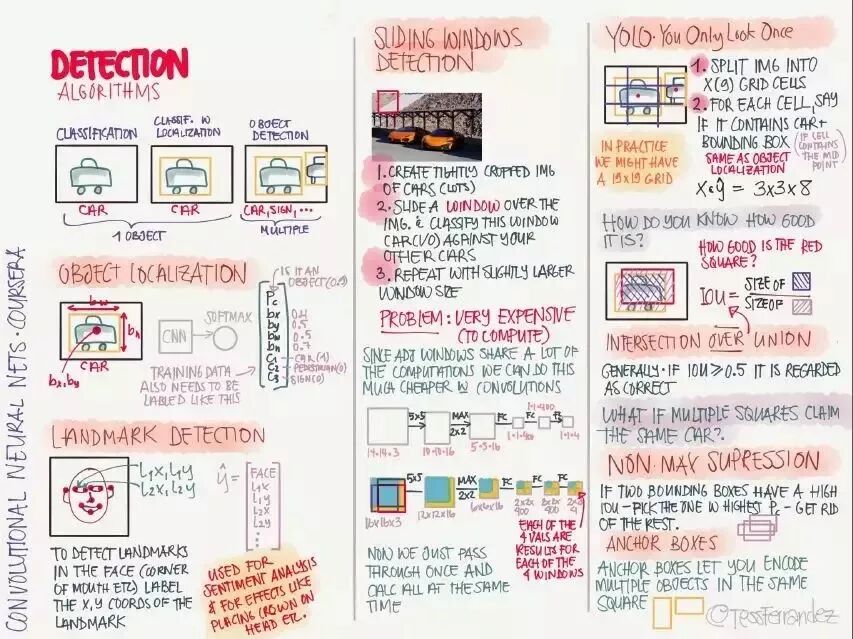 CONVOLUTIONAL NEURAL NETS · COURSERA
DETECTION
ALGORITHMS
CLASSIFICATION
CLASSIF. W
LOCALIZATION
OBJECT
DETECTION
CAR
CAR
CAR, SIGN, ...
1 OBJECT
MULTIPLE
OBJECT LOCALIZATION
bw
bh
bx,by
CAR
CNN
SOFTMAX
IS IT AN
OBJECT (0,1)
Pc
bx 0.4
by 0.5
bw 0.5
bh 0.7
C1 CAR (1)
C2 PEDESTRIAN(0)
C3 SIGN(0)
TRAINING DATA
ALSO NEEDS TO BE
LABLED LIKE THIS
LANDMARK DETECTION
l1x, l1y
l2x, l2y
ŷ =
FACE
l1x
l1y
l2x
l2y
⋮
TO DETECT LANDMARKS
IN THE FACE (CORNER
OF MOUTH ETC) LABEL
THE X,Y COORDS OF THE
LANDMARK
USED FOR
SENTIMENT ANALYSIS
& FOR EFFECTS LIKE
PLACING CROWN ON
HEAD ETC.
SLIDING WINDOWS
DETECTION
1. CREATE TIGHTLY CROPPED IMG
OF CARS (LOTS)
2. SLIDE A WINDOW OVER THE
IMG. & CLASSIFY THIS WINDOW
CAR (1/0) AGAINST YOUR
OTHER CARS
3. REPEAT WITH SLIGHTLY LARGER
WINDOW SIZE
PROBLEM: VERY EXPENSIVE
(TO COMPUTE)
SINCE ADJ WINDOWS SHARE A LOT OF
THE COMPUTATIONS WE CAN DO THIS
MUCH CHEAPER W CONVOLUTIONS
5x5
MAX
2x2
FC
1·1·400
FC
14·14·3
10·10·16
5·5·16
1·1·400
1·1·4
5x5
MAX
2x2
FC
FC
FC
16x16x3
12x12x16
6x6x16
2x2x
400
2x2x
400
2x2x
4
EACH OF THE
4 VALS ARE
RESULTS FOR
EACH OF THE
4 WINDOWS
NOW WE JUST PASS
THROUGH ONCE AND
CALC ALL AT THE SAME
TIME
YOLO · YOU ONLY LOOK ONCE
1. SPLIT IMG INTO
X(9) GRID CELLS
2. FOR EACH CELL, SAY
IF IT CONTAINS CAR +
BOUNDING BOX
(IF CELL
CONTAINS
THE MID
POINT)
IN PRACTICE
WE MIGHT HAVE
A 19x19 GRID
SAME AS OBJECT
LOCALIZATION
X&ŷ = 3x3x8
HOW DO YOU KNOW HOW GOOD
IT IS?
HOW GOOD IS THE RED
SQUARE?
IOU =
SIZE OF
SIZE OF
INTERSECTION OVER UNION
GENERALLY · IF IOU ≥ 0.5 IT IS REGARDED
AS CORRECT
WHAT IF MULTIPLE SQUARES CLAIM
THE SAME CAR?
NON-MAX SUPRESSION
IF TWO BOUNDING BOXES HAVE A HIGH
IOU - PICK THE ONE W HIGHEST Pc - GET RID
OF THE REST.
ANCHOR BOXES
ANCHOR BOXES LET YOU ENCODE
MULTIPLE OBJECTS IN THE SAME
SQUARE
@TessFerrandez